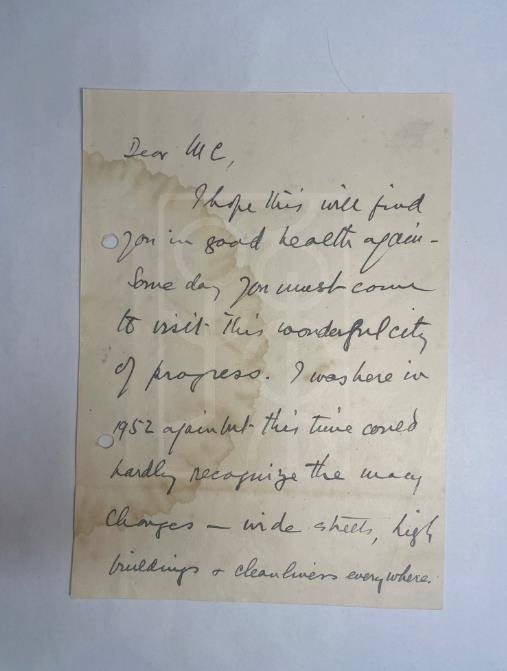 Dear MC,
I hope this will find
you in good health again -
Some day you must come
to visit this wonderful city
of progress. I was here in
1952 again but this time could
hardly recognize the many
changes — wide streets, high
buildings & cleanliness everywhere.